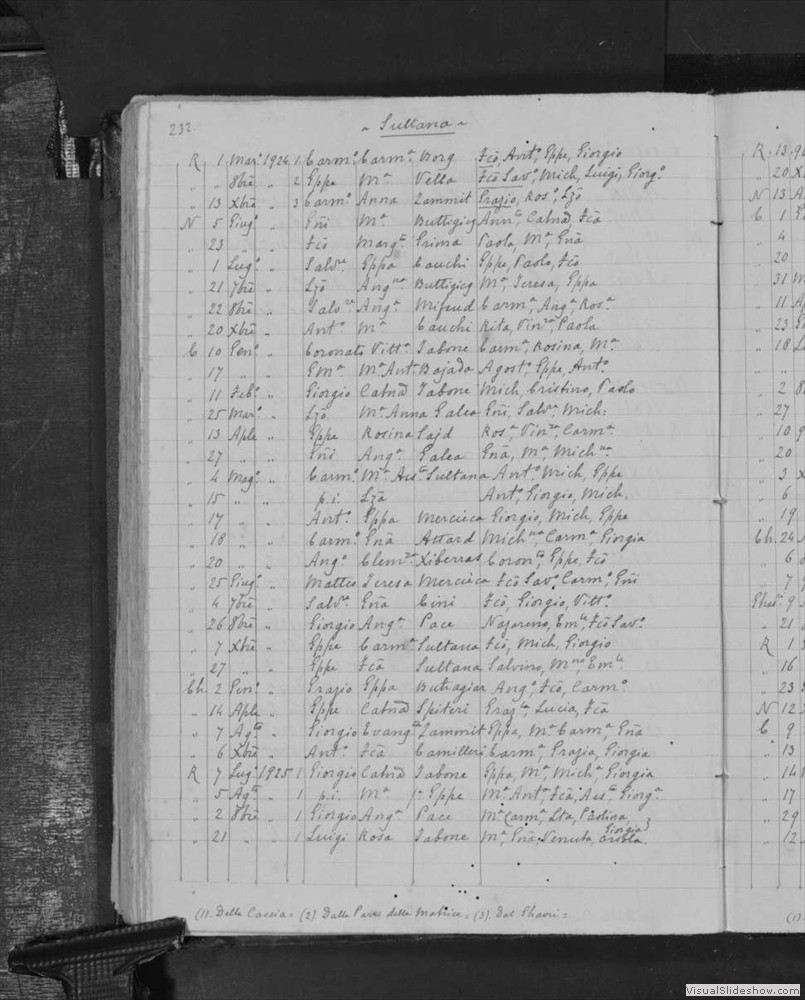 232
~ Sultana ~
R 1 Mar.º 1924 1 Carm.º Carm.ª Borg Fcõ, Ant.º, Eppe, Giorgio
" " 8bre " 2 Eppe M.ª Vella Fcõ Sav.º, Mich, Luigi, Giorg.º
" 13 Xbre " 3 Carm.º Anna Zammit Grazio, Ros.º, Lzõ
N 5 Giug.º " Gñi M.ª Buttigieg Catnã, Fcã
" 23 " " Fcõ Marg.ta Prima Paola, M.ª, Gnã
" 1 Lug.º " Salv.re Eppa Cauchi Eppe, Paolo, Fcõ
" 21 7bre " Lzõ Ang.na Buttigieg M.ª, Teresa, Eppa
" 22 8bre " Salv.re Ang.ª Mifsud Carm.ª, Ang.ª, Ros.ª
" 20 Xbre " Ant.º M.ª Cauchi Rita, Vin.za, Paola
C 10 Gen.º " Coronato Vitt.ª Tabone Carm.ª, Rosina, M.ª
" 17 " " M.ª Ant.ª Bajada Agost.º, Eppe, Ant.º
" 11 Feb.º " Giorgio Catnã Tabone Mich, Cristino, Paolo
" 25 Mar.º " Lzõ M.ª Anna Galea Gñi, Salv.re, Mich:
" 13 Aple " Eppe Rosina Sajd Ros.ª, Vin.za, Carm.ª
" 27 " " Gñi Ang.ª Galea Gnã, M.ª, Mich.na
" 4 Mag.º " Carm.º M.ª Ass.ta Sultana Ant.º, Mich, Eppe
" 15 " " p.i. Lzã Ant.º, Giorgio, Mich.
" 17 " " Ant.º Eppa Mercieca Giorgio, Mich, Eppe
" 18 " " Carm.º Gnã Attard Mich.na, Carm.ª, Giorgia
" 20 " " Ang.º Clem.za Xiberras Coron.to, Eppe, Fcõ
" 25 Giug.º " Matteo Teresa Mercieca Fcõ Sav.º, Carm.º, Gñi
" 4 7bre " Salv.re Gnã Cini Fcõ, Giorgio, Vitt.º
" 26 8bre " Giorgio Ang.ª Pace Nazareno, Em.le, Fcõ Sav.º
" 7 Xbre " Eppe Carm.ª Sultana Fcõ, Mich, Giorgio
" 27 " " Eppe Fcã Sultana Salvino, M.no, Em.le
Ch. 2 Gen.º " Grazio Eppa Buttagiar Ang.º, Fcõ, Carm.º
" 14 Aple " Eppe Catnã Spiteri Lucia, Fcã
" 7 Ag.to " Giorgio Evang.ta Zammit Eppa, M.ª Carm.ª, Gnã
" 6 Xbre " Ant.º Fcã Camilleri Carm.ª, Grazia, Giorgia
R 7 Lug.º 1925 1 Giorgio Catnã Tabone Eppa, M.ª, Mich.ª, Giorgia
" 5 Ag.to " 1 p.i. M.ª Eppe M.ª Ant.ª, Fcã, Ass.ta, Giorg.ª
" 2 8bre " 1 Giorgio Ang.ª Pace M.ª Carm.ª, Lta, Paolina, Giorgia
" 21 " " 1 Luigi Rosa Tabone M.ª, Gnã, Venuta,
(1). Della Caccia = (2). Dalla Parr. della Matrice = (3). Dal Gharri =
R. 13
" 20
N 13
C 1
" 4
" 20
" 31
" 11
" 23
" 18
" "
" 2
" 27
" 10
" 20
" 3
" 6
" 19
Ch. 24
" 6
" 7
9
" 21
R 1
" 16
" 23
N 12
C 9
" 13
" 14
" 17
" 29
" 12
(1)
VisualSlideshow.com